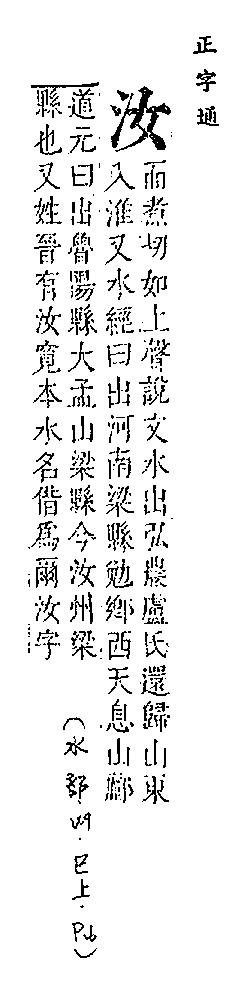 正字通
汝
而煮切如上聲說文水出弘農盧氏還歸山東
入淮又水經曰出河南梁縣勉鄉西天息山酈
道元曰出魯陽縣大盂山梁縣今汝州梁
縣也又姓晉有汝寬本水名借爲爾汝字
(水部.巳上.P6)